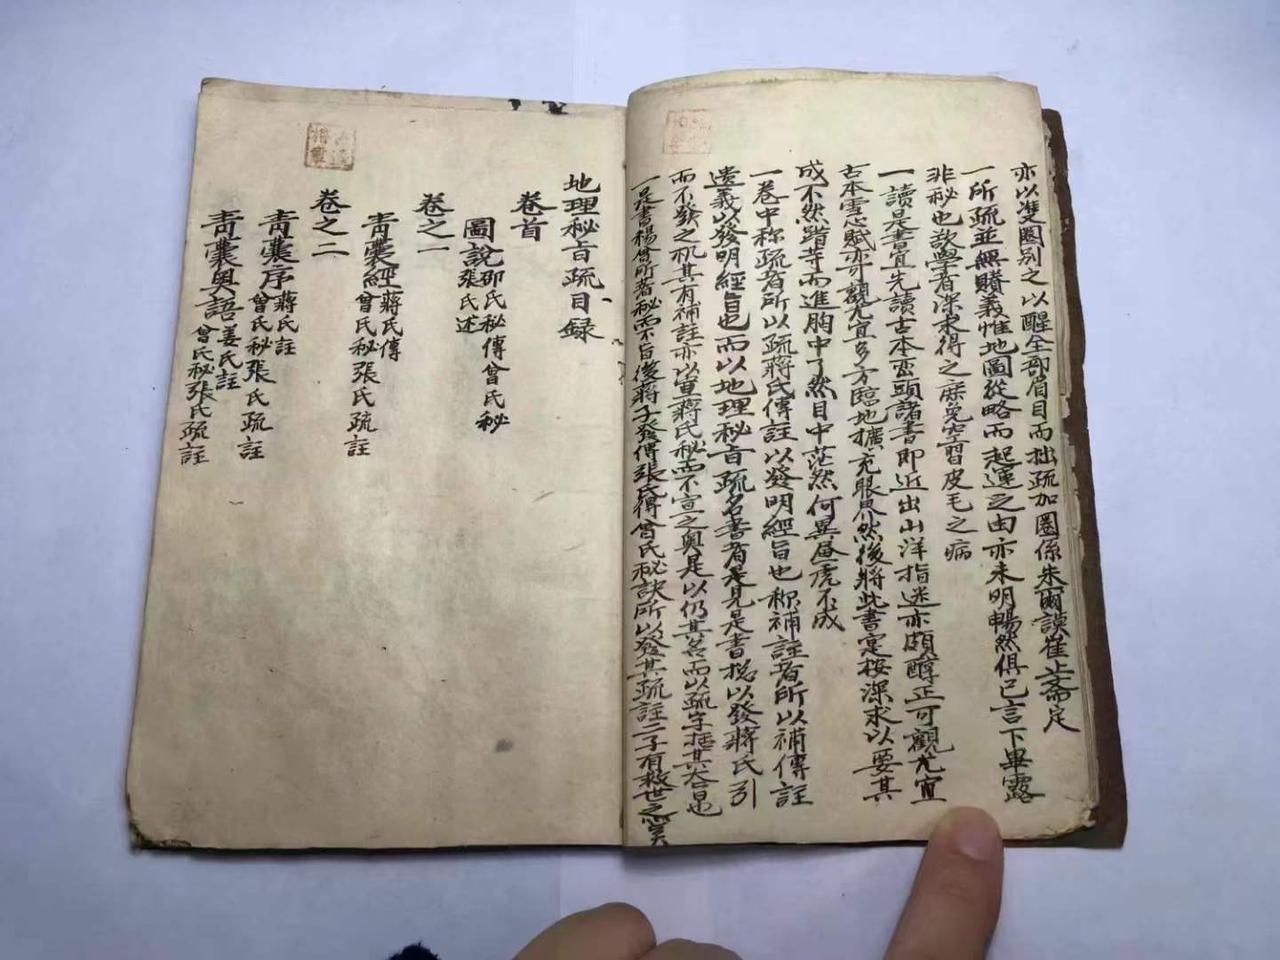 亦以雙圈别之以醒全部眉目而拙疏加圈係朱爾謨崔止齋定
一所疏並無賸義惟地圖從略而起運之由亦未明暢然俱已言下畢露
非秘也欲學者深求得之庶免空習皮毛之病
一讀是書宜先讀古本巒頭諸書即近出山洋指迷亦頗醇正可觀尤宜
古本雪心賦亦觀尤宜多方臨地擴充眼界然後將此書寔按深求以要其
成不然躐等而進胸中了然目中茫然何異畫虎不成
一卷中称疏者所以疏蔣氏傳註以發明經旨也称補註者所以補傳註
遺義以發明經旨也而以地理秘旨疏名書者是見是書揔以發蔣氏引
而不發之机其有補註亦以蔣氏秘而不宣之奥是以仍其名而以疏字括其答也
一是書楊曾所者秘而不旨後蔣子發傳張氏得曾氏秘訣所以發其疏註二子有救世之
地理秘旨疏目録
卷首
圖說邵氏秘傳曾氏秘
張氏述
卷之一
青囊經蔣氏傳
曾氏秘張氏疏註
卷之二
青囊序蔣氏註
曾氏秘張氏疏註
青囊奥語姜氏註
曾氏秘張氏疏註